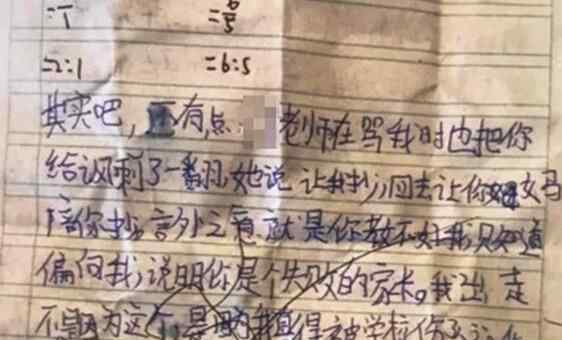 =2/1 =6/5
=2:1 =6:5
其实吧，还有点 老师在骂我时也把你
给讽刺了一翻，她说让我抄，回去让你妈妈
陪你抄，言外之意就是你教不好我，只知道
偏向我，说明你是个失败的家长。我出走
不是因为这个，是因为我真得被学校伤